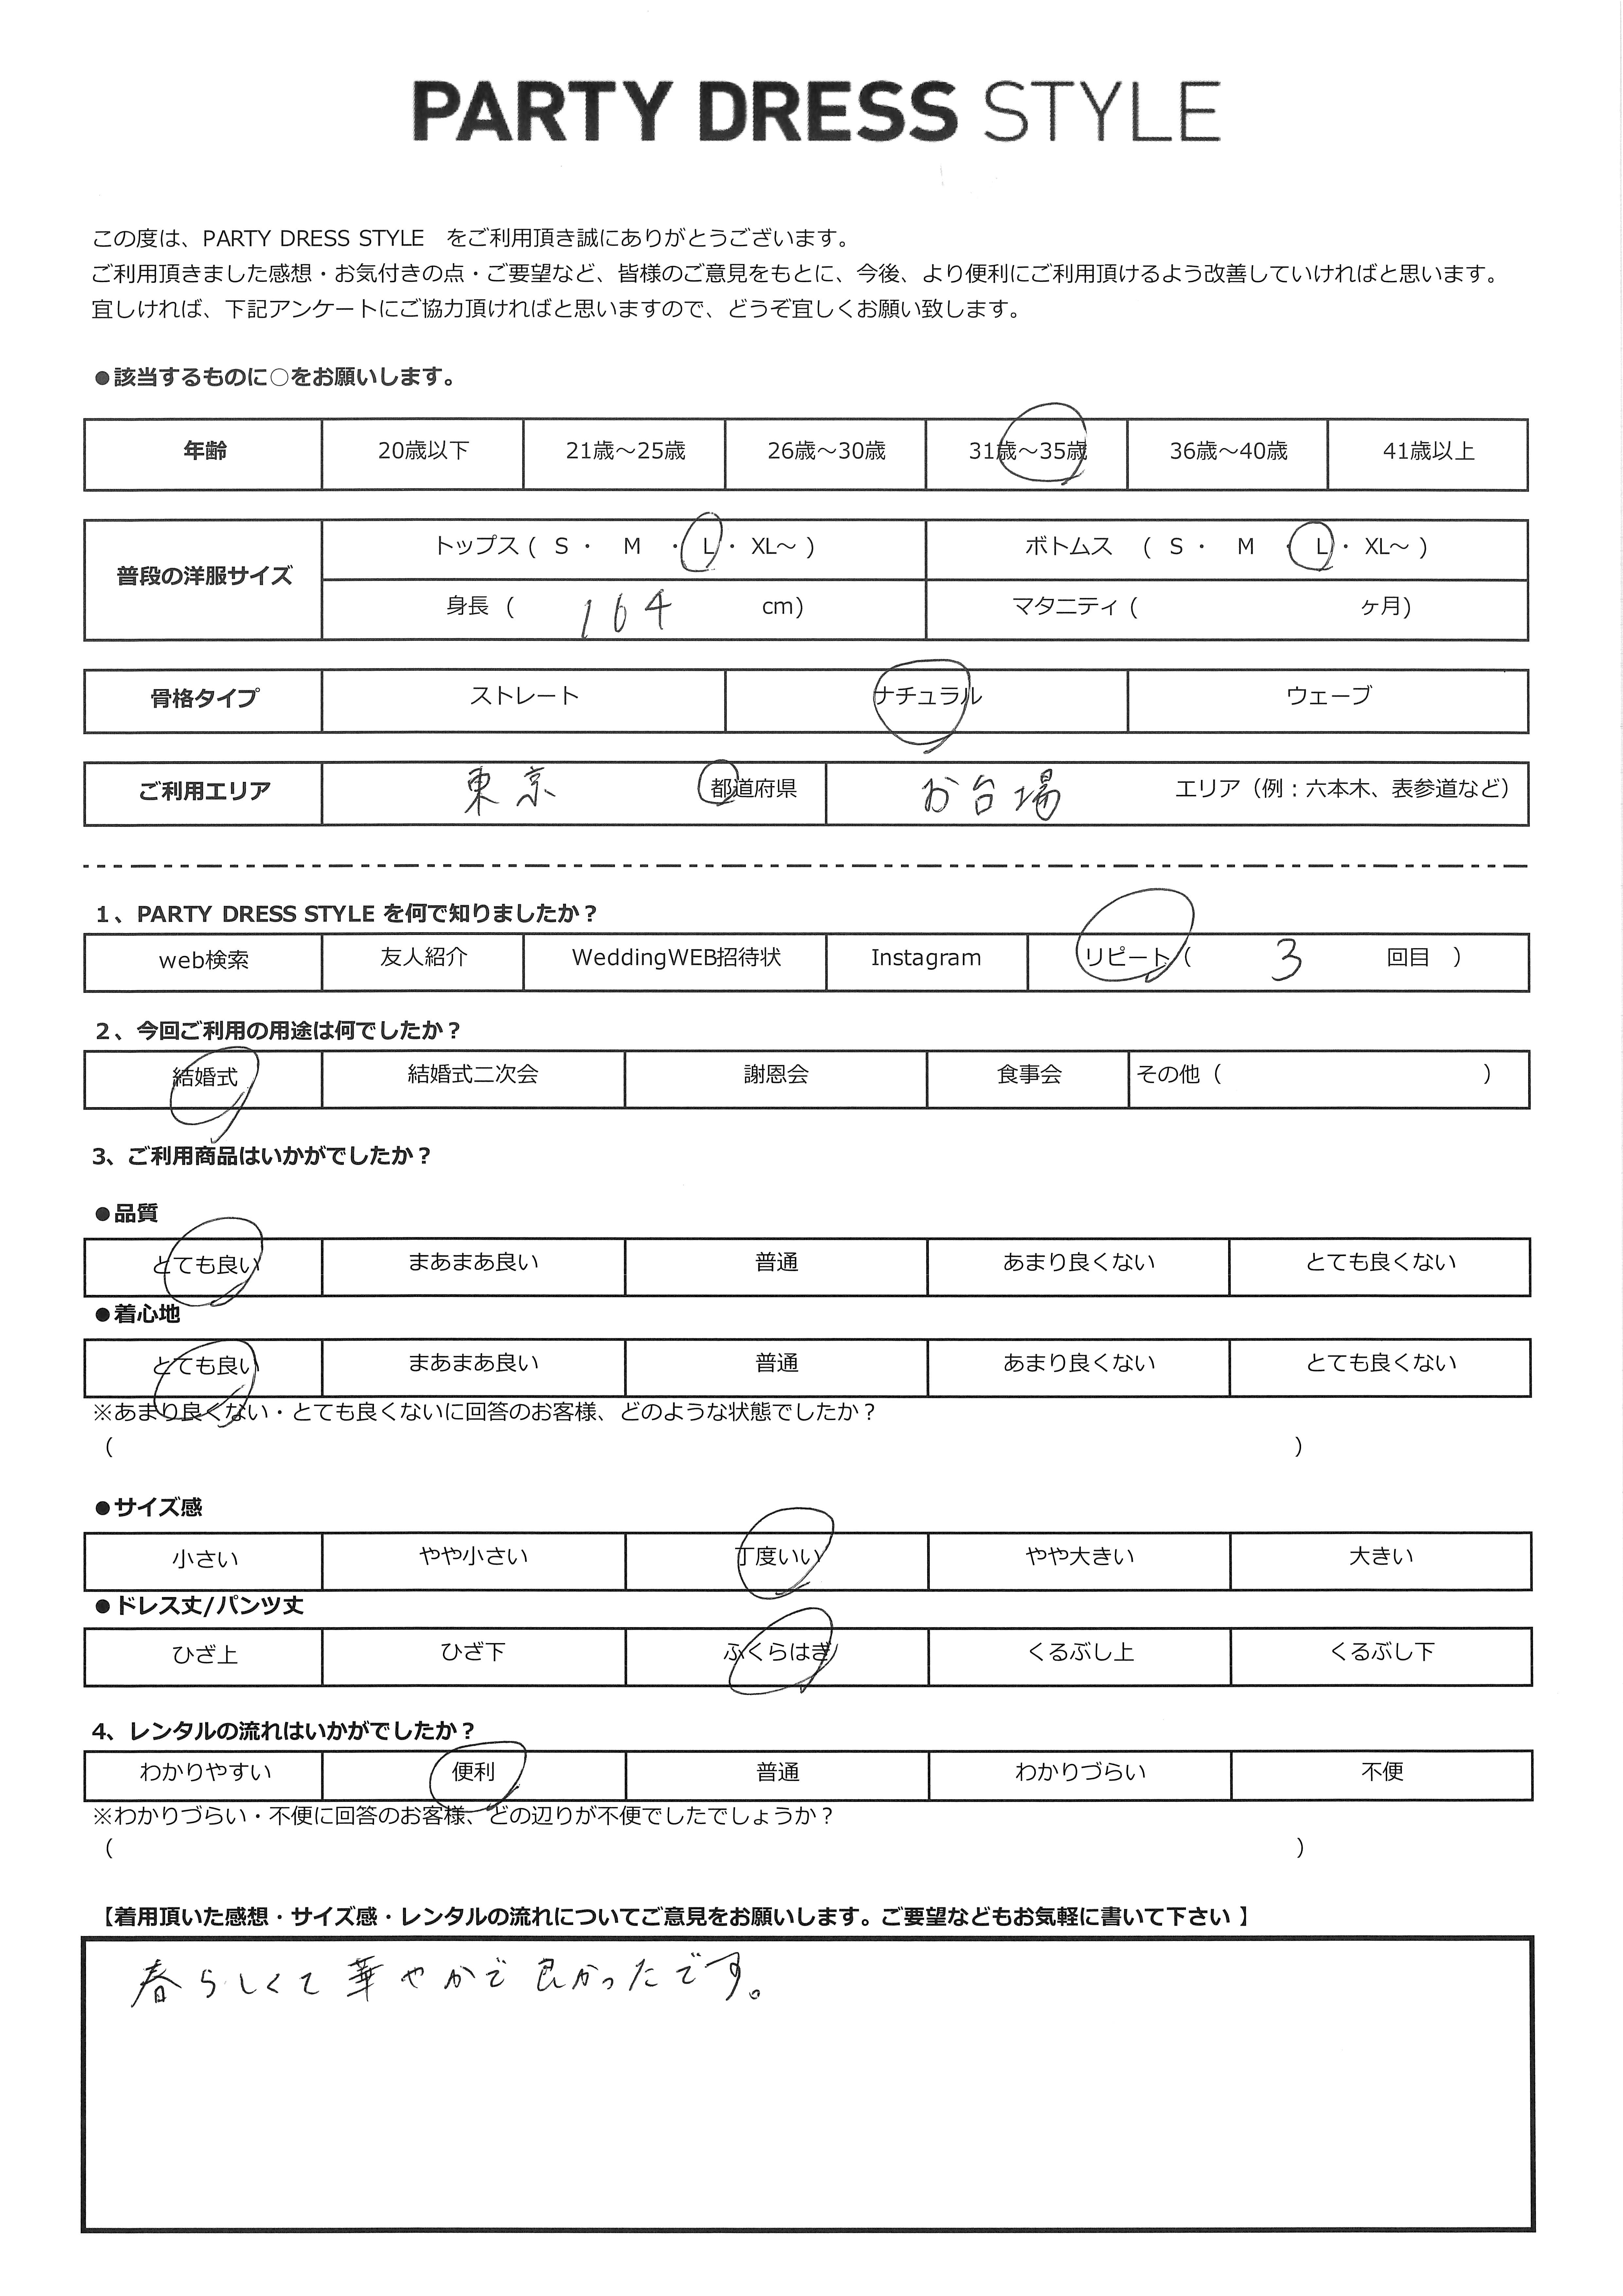 PARTY DRESS STYLE
この度は、PARTY DRESS STYLE　をご利用頂き誠にありがとうございます。
ご利用頂きました感想・お気付きの点・ご要望など、皆様のご意見をもとに、今後、より便利にご利用頂けるよう改善していければと思います。
宜しければ、下記アンケートにご協力頂ければと思いますので、どうぞ宜しくお願い致します。
●該当するものに○をお願いします。
年齢 20歳以下 21歳～25歳 26歳～30歳 31歳～35歳 36歳～40歳 41歳以上
普段の洋服サイズ
トップス ( S ・ M ・ L ・ XL～ ) ボトムス ( S ・ M ・ L ・ XL～ )
身長 ( 164 cm) マタニティ ( ヶ月)
骨格タイプ ストレート ナチュラル ウェーブ
ご利用エリア 東京 都道府県 お台場 エリア（例：六本木、表参道など）
1、PARTY DRESS STYLE を何で知りましたか？
web検索 友人紹介 WeddingWEB招待状 Instagram リピート（ 3 回目 ）
2、今回ご利用の用途は何でしたか？
結婚式 結婚式二次会 謝恩会 食事会 その他（ ）
3、ご利用商品はいかがでしたか？
●品質
とても良い まあまあ良い 普通 あまり良くない とても良くない
●着心地
とても良い まあまあ良い 普通 あまり良くない とても良くない
※あまり良くない・とても良くないに回答のお客様、どのような状態でしたか？
（ ）
●サイズ感
小さい やや小さい 丁度いい やや大きい 大きい
●ドレス丈/パンツ丈
ひざ上 ひざ下 ふくらはぎ くるぶし上 くるぶし下
4、レンタルの流れはいかがでしたか？
わかりやすい 便利 普通 わかりづらい 不便
※わかりづらい・不便に回答のお客様、どの辺りが不便でしたでしょうか？
（ ）
【着用頂いた感想・サイズ感・レンタルの流れについてご意見をお願いします。ご要望などもお気軽に書いて下さい 】
春らしくて華やかで良かったです。